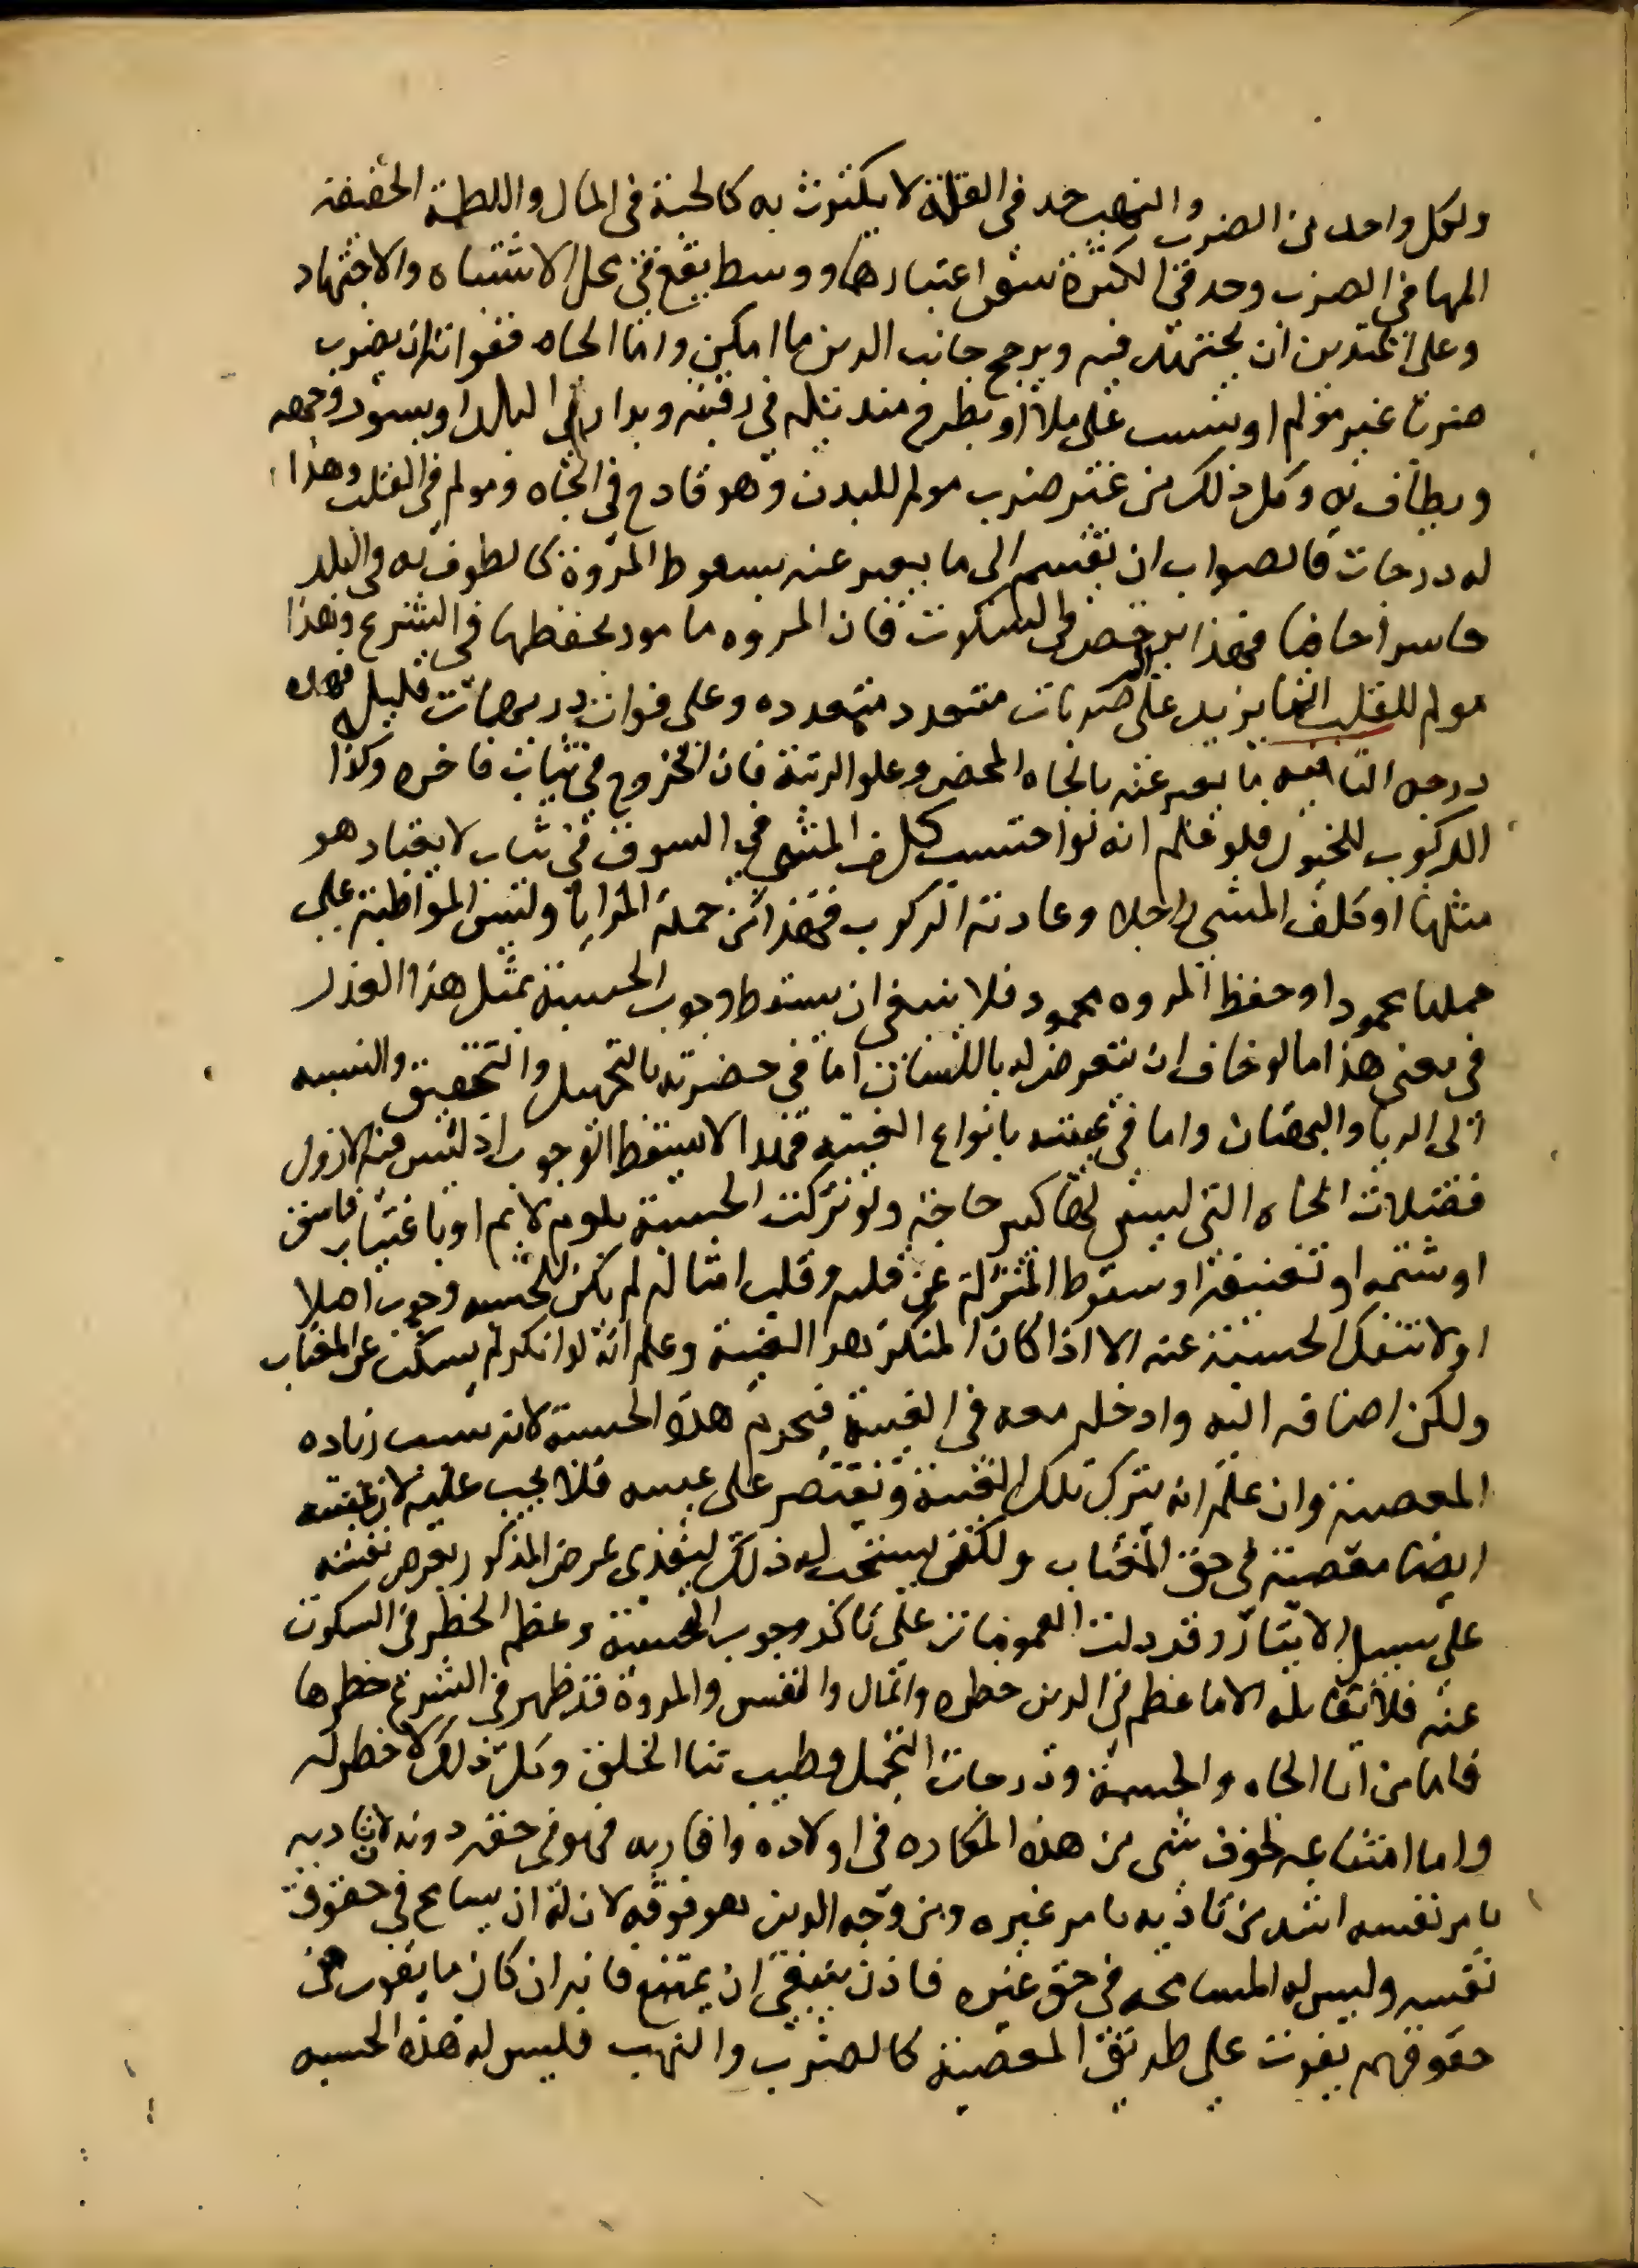 ولكل واحد من الضرب والنهب حد في القلة لا يكترث به كالحبة في المال واللطمة الخفيفة
المها في الضرب وحد في الكثرة تيقن اعتبارها ووسط يقع في محل الاشتباه والاجتهاد
وعلى المتدين ان يجتهد فيه ويرجح جانب الدين ما امكن واما الجاه ففواته ان يضرب
ضربا غير مولم او يسب على ملا او يطرح منديله في رقبته ويدار في البلد او يسود وجهه
ويطاف به وكل ذلك من غير ضرب مولم للبدن وهو قادح في الجاه ومولم في القلب وهذا
له درجات فالصواب ان يقسم الى ما يعبر عنه بسقوط المروة كالطوف به في البلد
حاسرا حافيا فهذا يرخص في السكوت فان المروه مامور بحفظها في الشرع وهذا
مولم للقلب الما يزيد على ضربات متعدد متعدده وعلى فوات دريهمات قليله فهذه
درجه الثانيه ما يعبر عنه بالجاه المحض وعلو الرتبة فان الخروج في ثياب فاخره وكذا
الركوب للخيول فلو علم انه لو احتسب كلف المشي في السوق في ثياب لا يعتاد هو
مثلها او كلف المشي راجلا وعادته الركوب فهذا من جملة المزايا وليس المواظبة على
حملها محمودا وحفظ المروه محمود فلا ينبغي ان يسقط وجوب الحسبة بمثل هذا القدر
في معنى هذا ما لو خاف ان يتعرض له باللسان اما في حضرته بالتجهيل والتحقيق والنسبه
الى الريا والبهتان واما في غيبته بانواع الغيبه فهذا لا يسقط الوجوب اذ ليس فيه الا زول
فضلات الجاه التي ليس لها كبير حاجة ولو تركت الحسبة بلوم لايم او باغتياب فاسق
او شتمه او تعنيفه او سقوط المنزلة عن قلبه وقلب امثاله لم يكن للحسبه وجوب اصلا
اذ لا تنفك الحسبة عنه الا اذا كان المنكر هو الغيبة وعلم انه لو انكر لم يسكت عن المغتاب
ولكن اضافه اليه وادخله معه في الغيبة فيحرم هذه الحسبة لانه سبب زياده
المعصية وان علم انه يترك تلك الغيبة ويقتصر على غيبته فلا يجب عليه لان غيبته
ايضا معصية في حق المغتاب ولكن يستحب له ذلك ليفدي عرض المذكور بعرض نفسه
على سبيل الايثار وقد دلت العمومات على تاكد وجوب الحسبة وعظم الخطر في السكوت
عنه فلا يقابله الا ما عظم في الدين خطره والمال والنفس والمروة قد ظهر في الشرع خطرها
فاما من ايا الجاه والحشمة ودرجات التجمل وطيب ثنا الخلق وكل ذلك لا خطر له
واما امتناعه لخوف شي من هذه المكاره في اولاده واقاربه فهو في حقه دونه لان تاديه
بامر نفسه اشد من تاذيه بامر غيره ومن وجه الدين هو فوقه لان له ان يسامح في حقوق
نفسه وليس له المسامحه في حق غيره فاذن ينبغي ان يمتنع فانه ان كان ما يفوت من
حقوقهم يفوت على طريق المعصية كالضرب والنهب فليس له هذه الحسبه